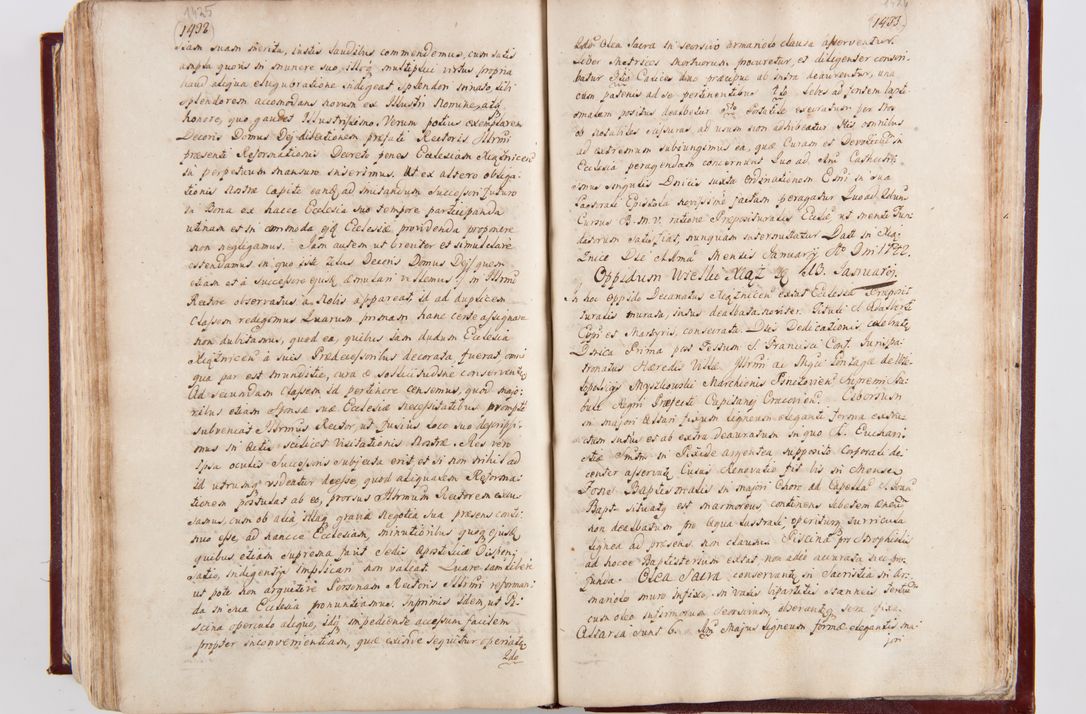 1425
(1492)
suam merita, iustis laudibus commendemus, cum satis
ampla quoris in munere suo multiplici virtus propria
haud aliqua eloquoratione indigeat splendor innato, sibi
splendorem accomodans novum ex Illustri Nomine, atq
honore, quo gaudet Illustrissimo. Verum potius exemplarem
Decoris Domus Dej dilationem prefati Rectoris Illrmi
presenti Reformationis Decreto penes Ecclesiam
in perpetuum mansuro inserimus. Ut ex altero obliga-
tionis Nostræ capite eandē ad imitandum Successori futuro
in Bona ex hacce Ecclesia suo tempore participanda
utinam et in commoda eq Ecclesiæ providenda proponere
non negligamus. Jam autem ut breviter et simul clare
ostendamus in quo iste titus Decoris Domus Dej, quem
etiam et à successore ejusq æmulari volumus in Illrmo
Rectore observatus à Nobis appareat, id ad duplicem
Classem redigemus Quarum primam hanc certe assignare
non dubitamus, quod ea, quibus iam dudum Ecclesia
à suis Prædecessoribus decorata fuerat, omni
qua par est munditie, cura et sollicitudine conserventur
Ad secundam Classem id pertinere censemus, quod majo-
ribus etiam Sponsæ suæ Ecclesiæ necessitatibus prompte
subvenerit Illrmus Rector, ut fusius loco suo descripsi-
mus in Actu scilicet Visitationis Nostræ. Res vero
ipsa oculis Successoris subjecta erit, et si non nihil ad
id utrumq videatur deesse, quod aliquatem Reforma-
tionem postulat ab eo, prorsus Illrmum Rectorem excu
samus, cum ob alia illaq gravia negotia sua præsens conti-
nuo esse ad hancce Ecclesiam, minutioribus quoq ejusq
quibus etiam suprema favit Sedis Apostolicæ Dispen-
satio, indigentijs implicari non valeat. Quare iam libere
ut pote non arguitere Personam Rectoris Illrmi reforman-
da in sua Ecclesia pronuntiamus. Inprimis Idem, ut Pi-
scina operculo aliquo, sibi impediente accessum facilem
propter inconvenientiam, quæ exinde sequitur operiatur
2do
(1493)
2do Olea Sacra in seorsivo armariolo clausa asserventur.
Liber Metrices mortuorum procuretur, et diligenter conscri-
batur Calices dino præcipue ab intra deaurentur, una
cum patenis ad se pertinentibus Labes ad fontem bapti-
smatem positus dealbetur Portatile execratum per Nos
ob notabiles scissuras, ad usum non adhibeatur His omnibus
ad extremum subiungimus ea, quæ Curam et Devotionem in
Ecclesia peragendam concernunt Quo ad Catechis-
mus singulis Dnicis iuxta Ordinationem Ssmi in sua
Pastorali Epistola novissime factam peragatur Quo ad
Cursus B. M. V. ratione Præposituralis Ecclæ ut menti Fun-
datorum satis fiat, nunquam intermittatur Datt in
Die Mensis Januarij Ao Dni 1722.
Oppidum Wielkie Xiąż 13. Januarij.
In hoc Oppido Decanatus extat Ecclesia Præposi-
turalis murata, intus dealbata noviter. Tituli S. Adalberti
Eppi et Martyris, consecrata. Dies Dedicationis celebrata
Dnica Prima post Festum S. Francisci Conf. Jurispa-
tronatus Hæredis Villæ Illrmi ac Mgci
Myszkowski Marchionis Pinczovien Supremi Sa-
bulæ Regni Præfecti Capitanej Cracovien. Ciborium
in majori Altari fixum ligneum eleganti forma extru-
ctum intus et ab extra deauratum in quo S. Euchari-
stiæ Smtm in Pixide argentea supposito Corporali de-
center asservatur Cuius Renovatio fit bis in Mense
Fons Baptismalis in majori Choro ad Capellā S. Joan
Bapt. situatus est marmoreus, continens lebetem
non dealbatum pro aqua lustrali opertum turricula
lignea ad præsens non clausus Piscina pro Strophiolis
ad hocce Baptisterium extat non adeo accurata
Olea Sacra conservantur in Sacristia in Ar-
mariolo muro infixo; in Vasis bipartitis stanneis
cum oleo infirmorum seorsivum, observantur sera fixa.
Altaria sunt 6. Majus ligneum formæ elegantis ma-
jori